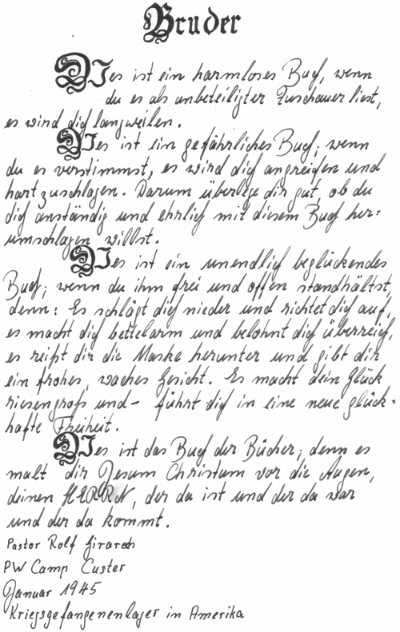 Bruder
Dies ist ein harmloses Buch, wenn
du es als unbeteiligter Zuschauer liest,
es wird dich langweilen.
Dies ist ein gefährliches Buch; wenn
du es verstimmst, es wird dich angreifen und
hart zuschlagen. Darum überlege dir gut, ob du
dich anständig und ehrlich mit diesem Buch her=
umschlagen willst.
Dies ist ein unendlich beglückendes
Buch; wenn du ihm frei und offen standhältst,
denn: Es schlägt dich nieder und richtet dich auf,
es macht dich bettelarm und belohnt dich überreich,
es reißt dir die Maske herunter und gibt dir
ein frohes, waches Gesicht. Es macht dein Glück
riesengroß und - führt dich in eine neue glück=
hafte Freiheit.
Dies ist das Buch der Bücher; denn es
malt dir Jesum Christum vor die Augen,
deinen HERRN, der da ist und der da war
und der da kommt.
Pastor Rolf
PW Camp Custer
Januar 1945
Kriegsgefangenenlager in Amerika